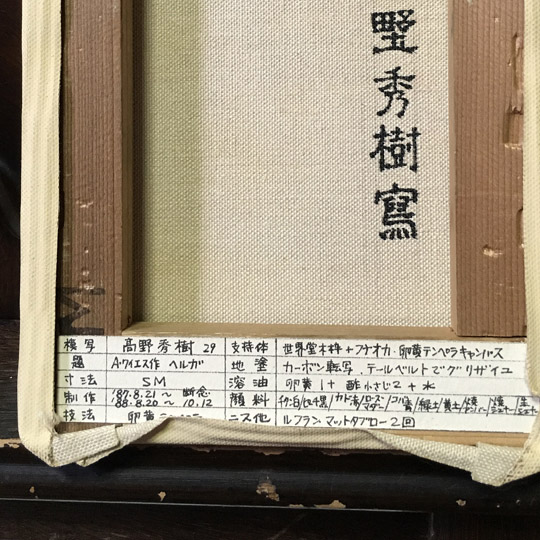 墅秀樹寫
模写 高野秀樹 29 支持体 世界堂木枠+フナオカ・卵黄テンペラキャンバス
題 A・ワイエス作 ヘルガ 地塗 カーボン転写.テールベルトでグリザイユ
寸法 SM 溶油 卵黄1+酢小さじ2+水
制作 '87.8.21〜 断念 '88.8.20〜10.12 顔料
技法 卵黄 ニス他 ルフラン・マットタブロー2回